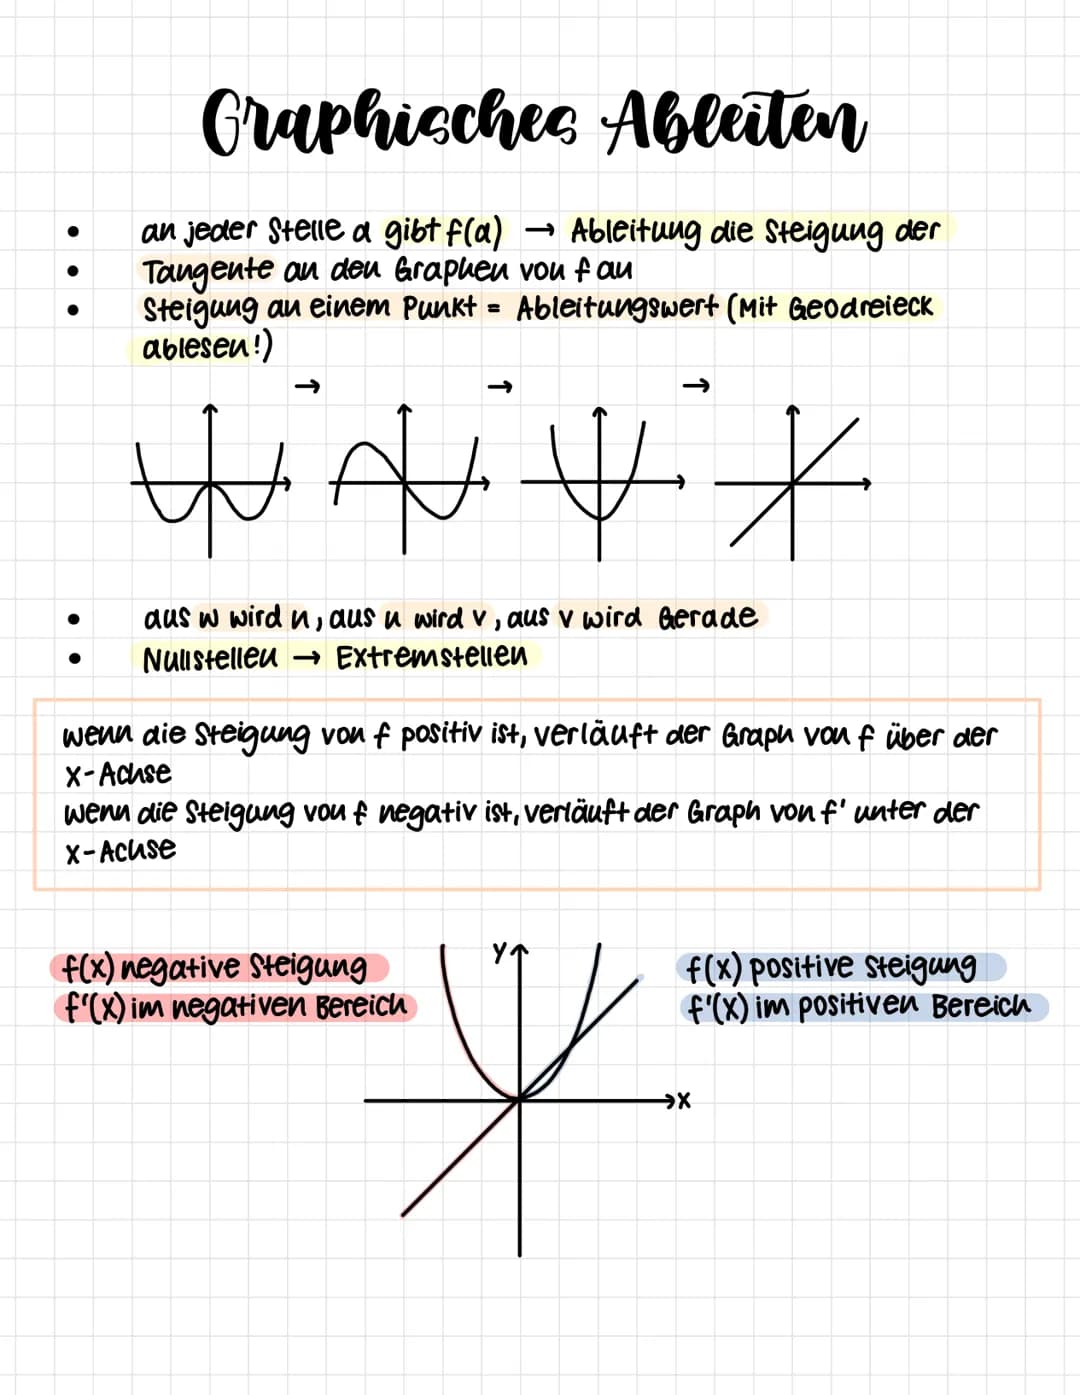 Graphisches Ableiten
• an jeder Stelle a gibt f(a) → Ableitung die Steigung der
• Tangente an den Graphen von f an
• Steigung an einem Punkt = Ableitungswert (Mit Geodreieck
ablesen!)
→ → →
• aus w wird n, aus n wird v, aus v wird Gerade
• Nullstellen → Extremstellen
wenn die Steigung von f positiv ist, verläuft der Graph von f über der
x-Achse
wenn die Steigung von f negativ ist, verläuft der Graph von f' unter der
x-Achse
y
f(x) negative Steigung
f'(x) im negativen Bereich
f(x) positive Steigung
f'(x) im positiven Bereich
x